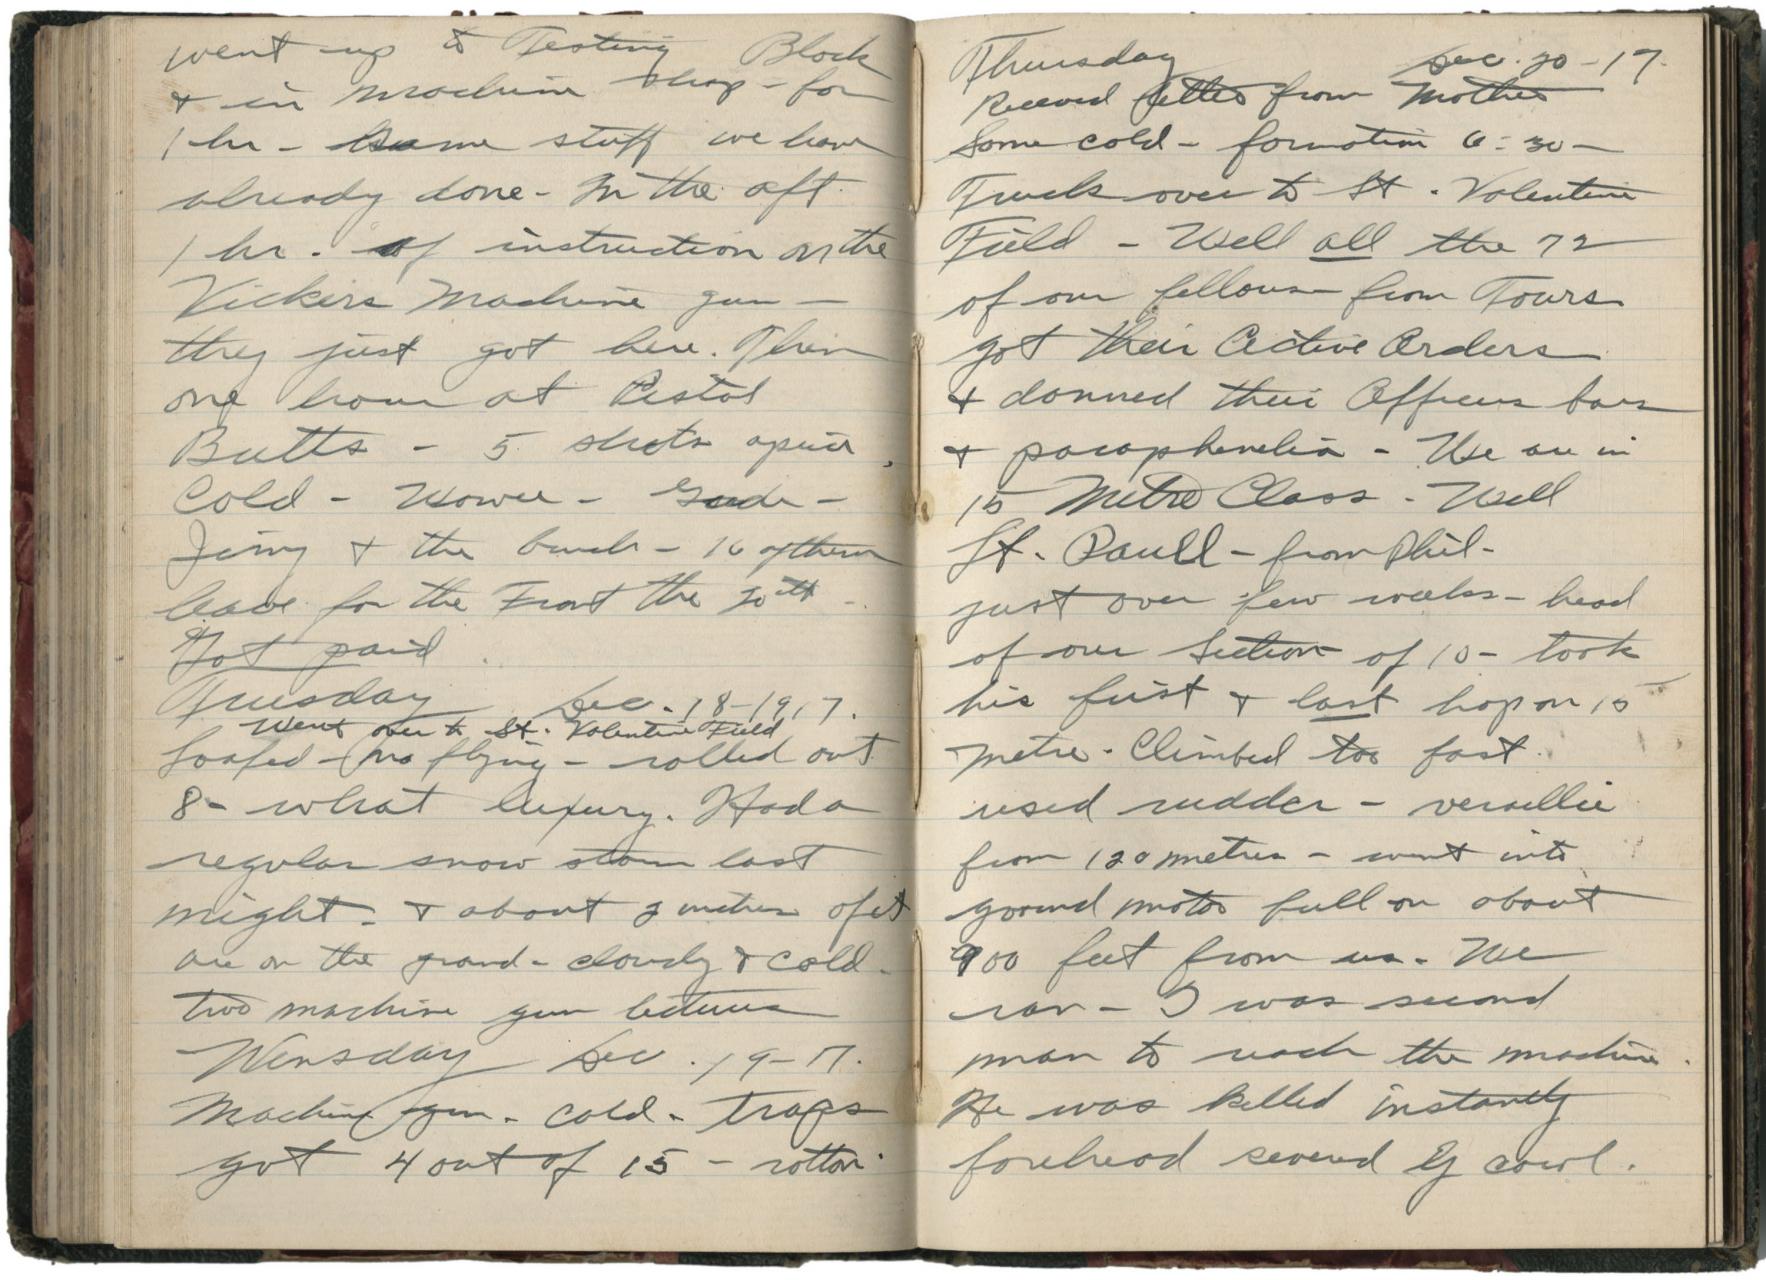 went up to Testing Block
& in Machine shop - for
1 hr - same stuff we have
already done - In the aft.
1 hr. of instruction on the
Vickers Machine gun -
they just got here. Then
one hour at Pistol
Butts - 5 shots apiece.
Cold - Gude -
Jimy & the bunch - 16 of them
leave for the Front the 20th -
Not paid.
Tuesday Dec. 18-1917.
Went over to St. Valentine Field
Loafed - (no flying - rolled out
8 - what luxury. Had a
regular snow storm last
night - & about 2 metres of it
are on the ground - cloudy & cold -
two machine gun lectures
Wensday Dec. 19-17.
Machine gun - cold - traps
got 4 out of 15 - rotton.
Thursday Dec. 20-17.
Received letter from Mother
Some cold - formation 6:30 -
Truck over to St. Valentine
Field - Well all the 72
of our fellows from Tours
got their Active Orders
& donned their Officers bars
& paraphenelia - We are in
15 Metre Class - Well
St. Paull - from Phil -
just over few weeks - head
of our Section of 10 - took
his first & last hop on 15
metre. Climbed too fast
used rudder - verillie
from 120 metres - went into
ground motor full on about
900 feet from us. We
ran - I was second
man to reach the machine.
He was killed instantly
forehead severed by cowl.